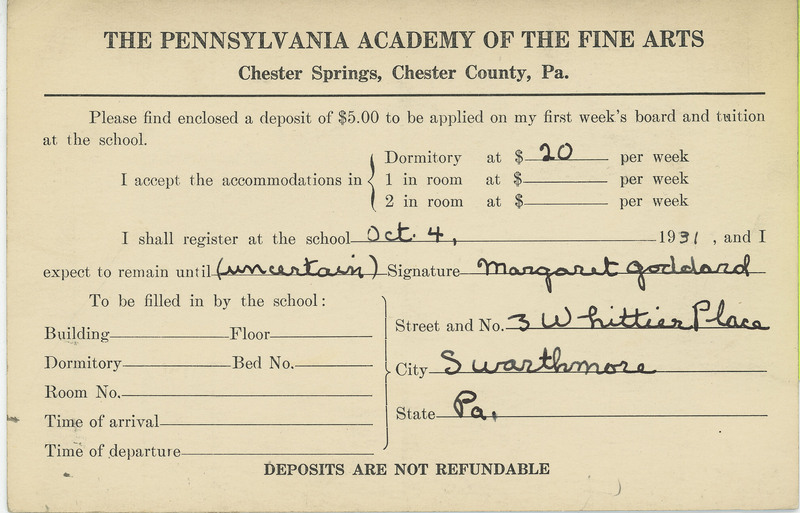 THE PENNSYLVANIA ACADEMY OF THE FINE ARTS
Chester Springs, Chester County, Pa.
Please find enclosed a deposit of $5.00 to be applied on my first week's board and tuition
at the school.
I accept the accommodations in
Dormitory at $ 20 per week
1 in room at $ per week
2 in room at $ per week
I shall register at the school Oct. 4, 1931 , and I
expect to remain until (uncertain) Signature Margaret Goddard
To be filled in by the school:
Building Floor
Dormitory Bed No.
Room No.
Time of arrival
Time of departure
Street and No. 3 Whittier Place
City Swarthmore
State Pa.
DEPOSITS ARE NOT REFUNDABLE